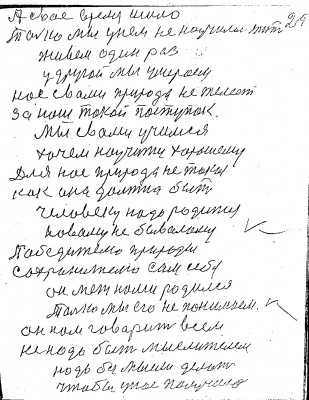 А свое время шло 29
Только мы у нем не научились жит
живем один раз
у другой мы умераем
нас свами природа не жалеет
За наш такой поступок.
Мы свами учимся
хочем научитя хорошему
Для нас природа не такая
как она должна быт
человеку надо родитя
новаму не бываламу
Победителю природы
сохранителю сам себу
он меж нами родился
Толко мы его не понимаем.
он нам говарит всем
ненадо быт мыслителем
надо бы мыслит делат
чтобы у нас получало